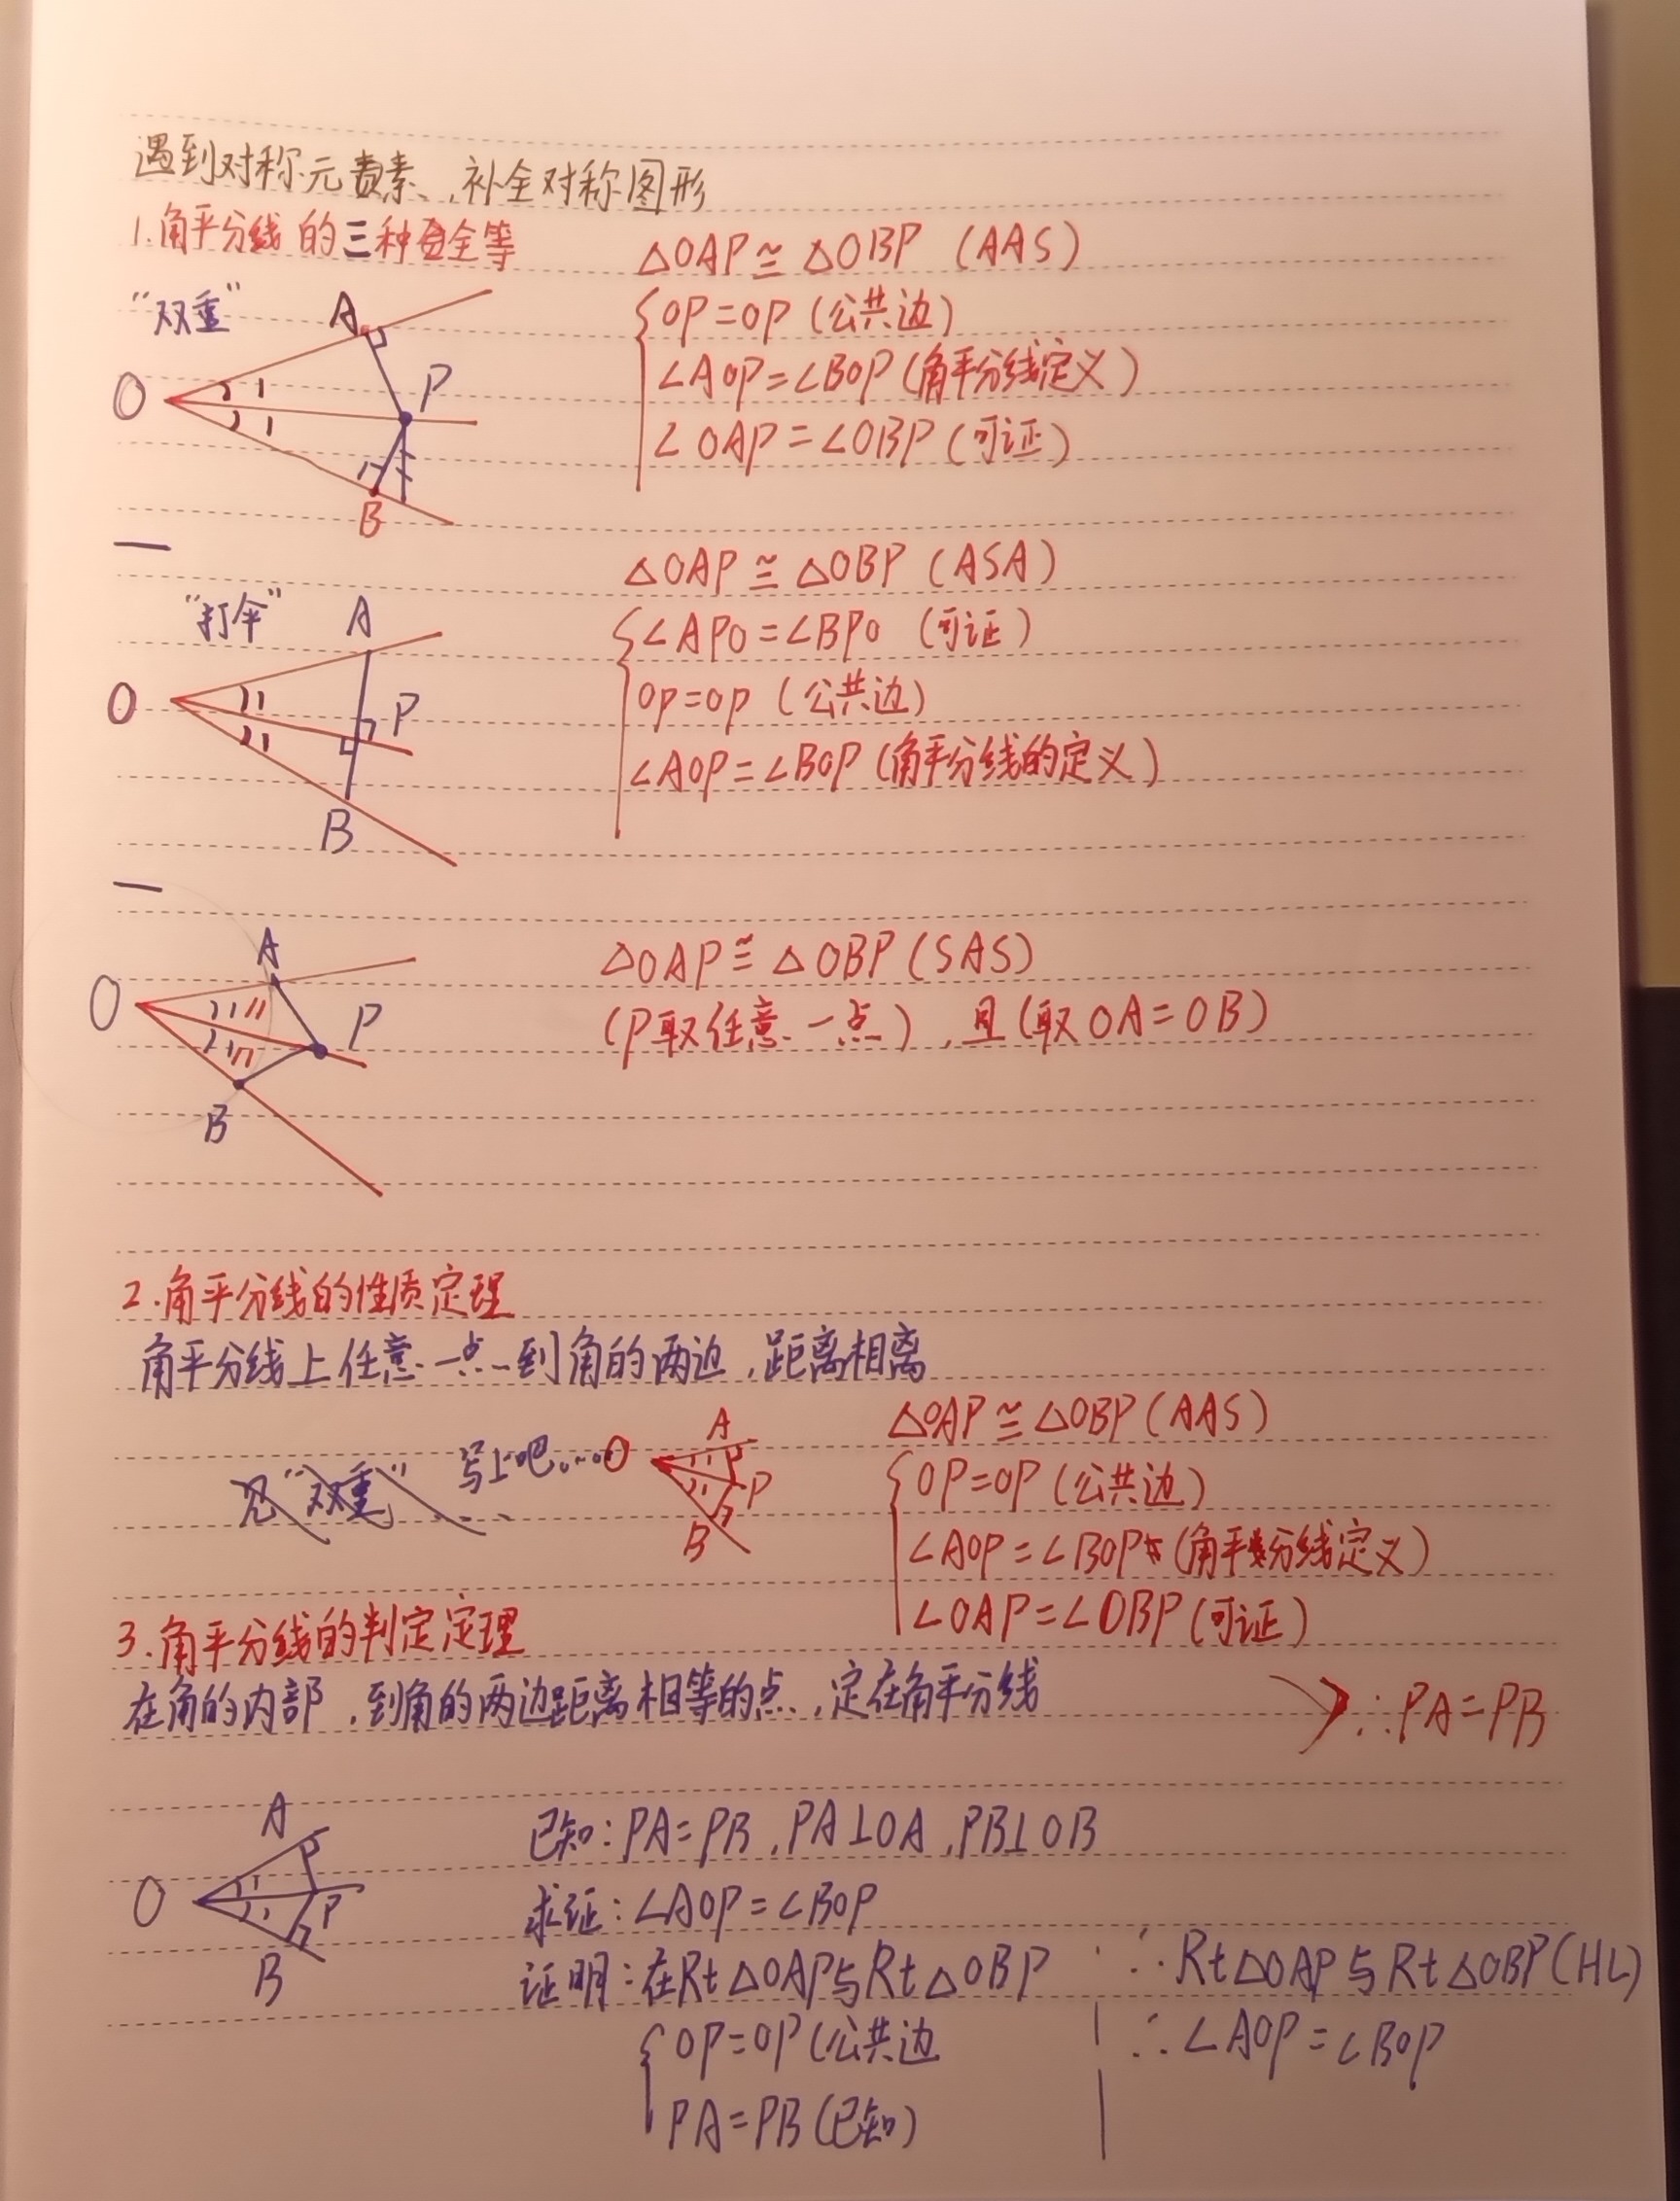 遇到对称元素,补全对称图形
1.角平分线的三种全等
"双垂"
A
O
P
B
△OAP≌△OBP (AAS)
OP=OP (公共边)
∠AOP=∠BOP (角平分线定义)
∠OAP=∠OBP (可证)
"打伞"
A
O
P
B
△OAP≌△OBP (ASA)
∠APO=∠BPO (可证)
OP=OP (公共边)
∠AOP=∠BOP (角平分线的定义)
A
O
P
B
△OAP≌△OBP (SAS)
(P取任意一点),且(取OA=OB)
2.角平分线的性质定理
角平分线上任意一点到角的两边,距离相离
见"双垂"
写上吧……
O
A
P
B
△OAP≌△OBP (AAS)
OP=OP (公共边)
∠AOP=∠BOP (角平分线定义)
∠OAP=∠OBP (可证)
∴PA=PB
3.角平分线的判定定理
在角的内部,到角的两边距离相等的点,定在角平分线
A
O
P
B
已知:PA=PB,PA⊥OA,PB⊥OB
求证:∠AOP=∠BOP
证明:在Rt△OAP与Rt△OBP
OP=OP(公共边
PA=PB(已知)
∴Rt△OAP与Rt△OBP(HL)
∴∠AOP=∠BOP